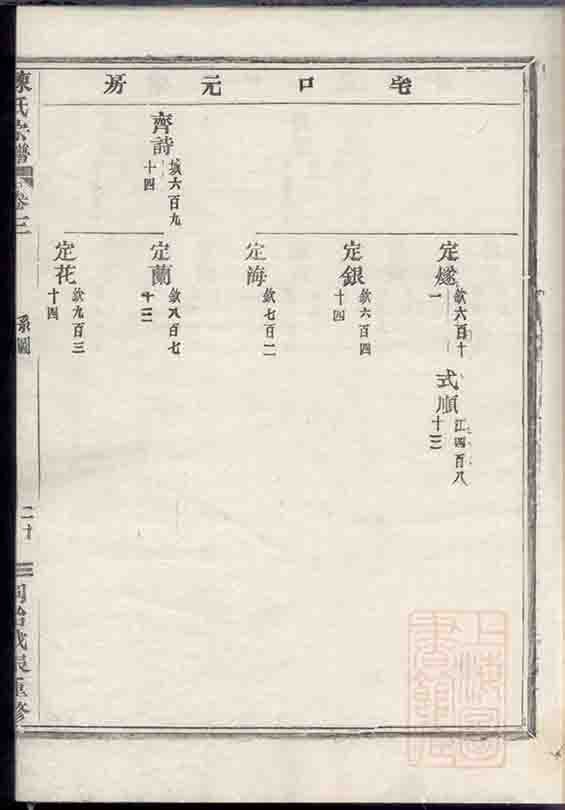 宅口元房
齊詩
城六百九
十四
定燧
欽六百十
一
式順
江四百八
十三
定銀
欽六百四
十四
定海
欽七百二
定蘭
欽八百七
十三
定花
欽九百三
十四
陳氏宗譜
卷三
系圖
二十
同治戊辰重修
上海圖書館藏